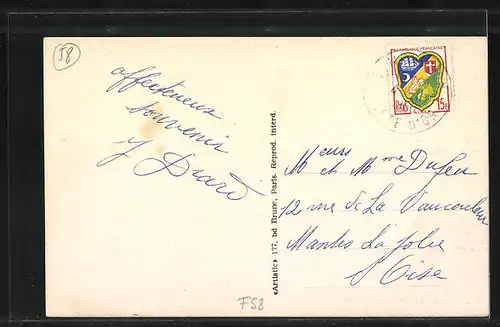 58
affectueux
souvenir
Y Drard
«Artistic» 177, bd Brune, Paris. Reprod. interd.
RÉPUBLIQUE FRANÇAISE
15F
Meurs et Mme Dufeu
12 rue de La Vaucouleur
Mantes La jolie
S Oise
F58